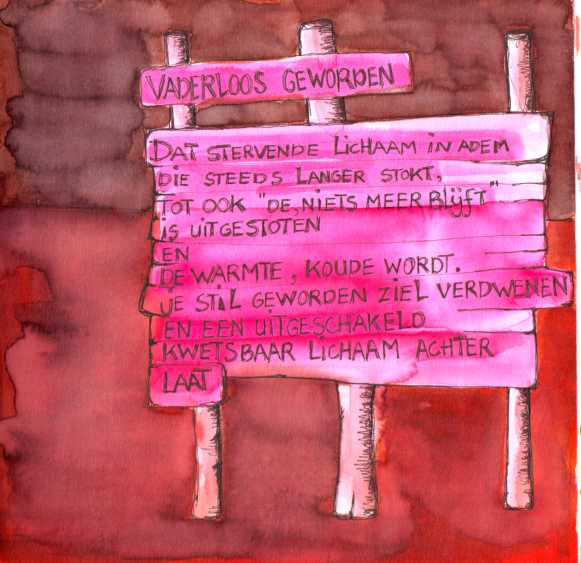 VADERLOOS GEWORDEN
DAT STERVENDE LICHAAM IN ADEM
DIE STEEDS LANGER STOKT,
TOT OOK "DE, NIETS MEER BLIJFT"
IS UITGESTOTEN
EN
DE WARMTE, KOUDE WORDT.
JE STIL GEWORDEN ZIEL VERDWENEN
EN EEN UITGESCHAKELD
KWETSBAAR LICHAAM ACHTER
LAAT